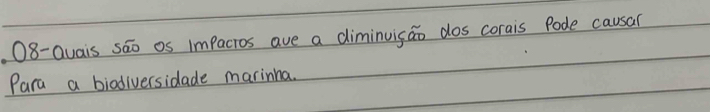 .08-Quais são os impactos que a diminuição dos corais Pode causar
Para a biodiversidade marinha.